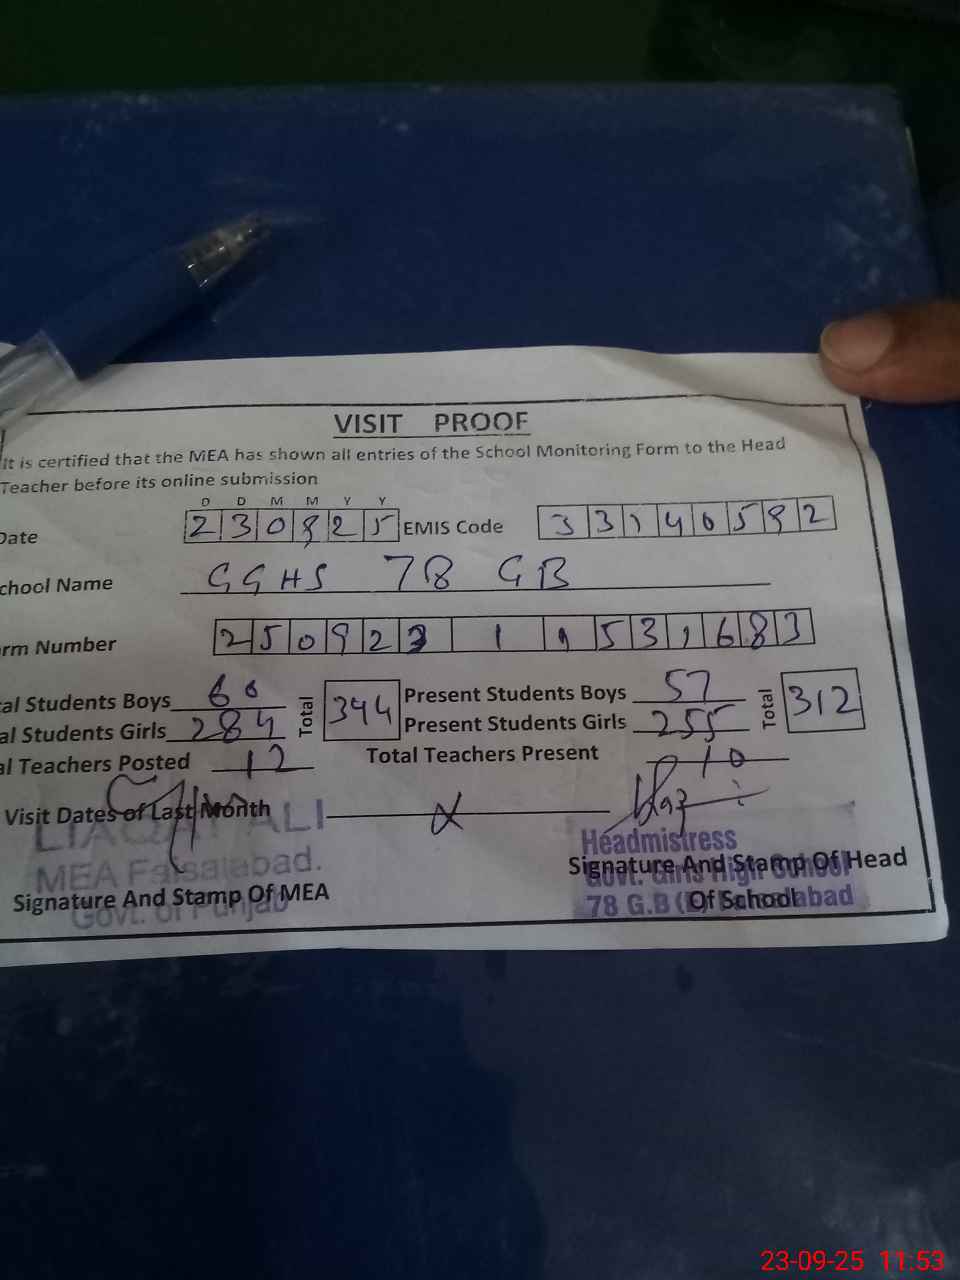 VISIT PROOF
It is certified that the MEA has shown all entries of the School Monitoring Form to the Head
Teacher before its online submission
D D M M Y Y
Date 2 3 0 9 2 5 EMIS Code 3 3 1 4 0 5 9 2
chool Name GGHS 78 GB
rm Number 2 5 0 9 2 3 1 1 5 3 1 6 8 3
al Students Boys 60 Total 344 Present Students Boys 57 Total 312
al Students Girls 284 Present Students Girls 255
al Teachers Posted 12 Total Teachers Present 10
Visit Dates of Last Month x
LIAQAT ALI
MEA Faisalabad.
Signature And Stamp Of MEA
Govt. of Punjab
Headmistress
Signature And Stamp Of Head
Govt. Girls High School
Of School
78 G.B
23-09-25 11:53